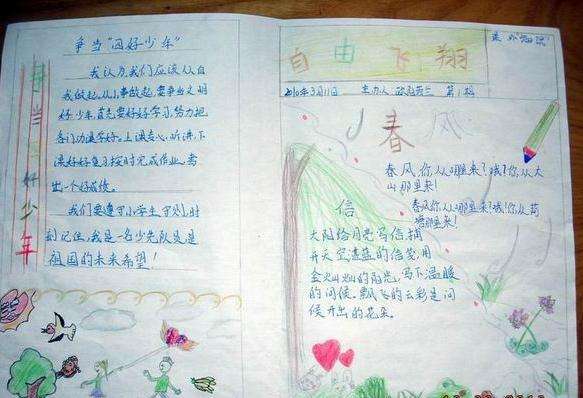 争当“四好少年”
我认为我们应该从自
我做起。从小事做起，要争当文明
好少年，首先要好好学习，努力把
各门功课学好。上课专心听讲，下
课好好复习，按时完成作业，考
出一个好成绩。
我们要遵守小学生守则，时
刻记住，我是一名少先队员是
祖国的未来希望！
争当四好少年
自由飞翔
2010年3月11日 主办人 第1期
春风
春风你从哪里来？哦！你从大
山那里来！
春风你从哪里来？哦！你从荷
塘那里来！
信
太阳给月亮写信，摘
片天空湛蓝的信笺，用
金灿灿的阳光，写下温暖
的问候。飘飞的云彩是问
候开出的花朵。